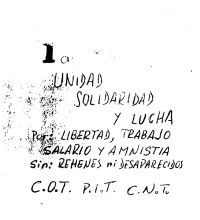 1o
UNIDAD
SOLIDARIDAD
Y LUCHA
Por: LIBERTAD, TRABAJO
SALARIO Y AMNISTIA
Sin: REHENES ni DESAPARECIDOS
C.O.T. P.I.T. C.N.T.